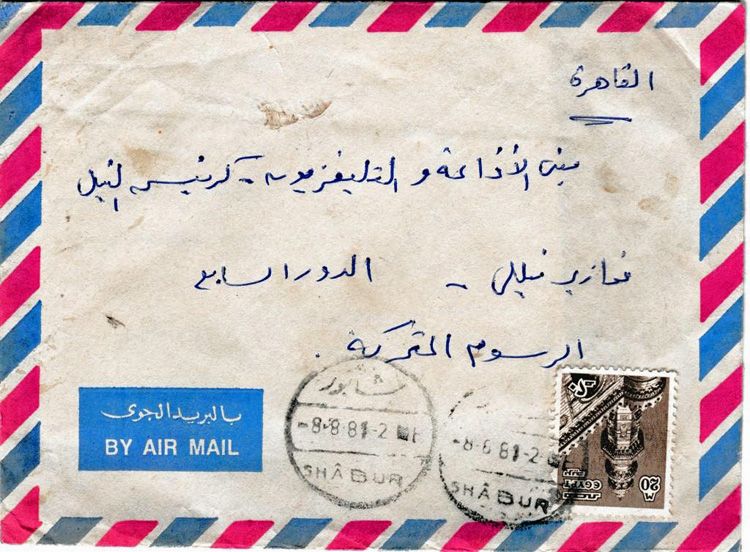 القاهرة
مبنى الأذاعة و التليفزيون - كورنيش النيل
الدور السابع
الرسوم المتحركة .
بالبريد الجوى
BY AIR MAIL
شابور
-8-8 81-2
SHÂBUR
-8-8 81-2
SHÂBUR
EGYPT
20